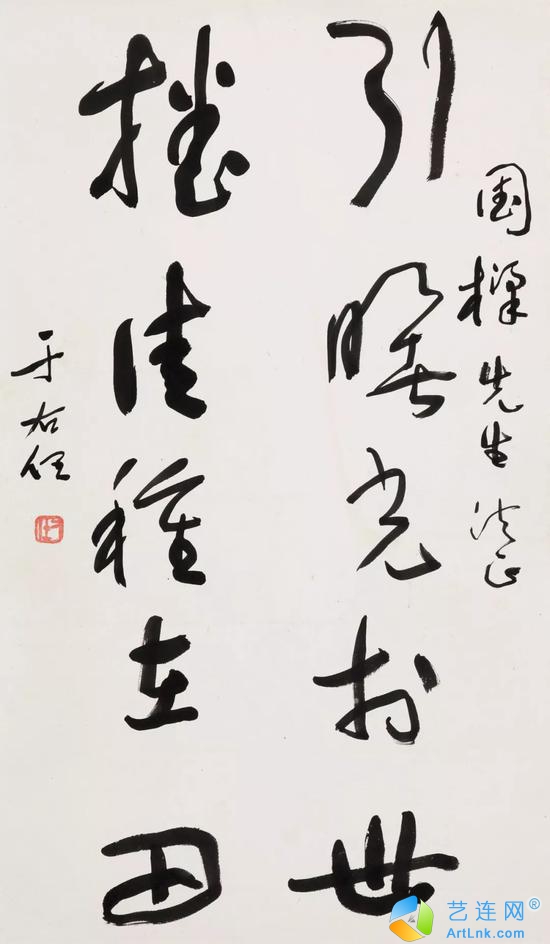 国樑先生法正
引曙光於世
播佳種在田
于右任
艺连网®
ArtLnk.com